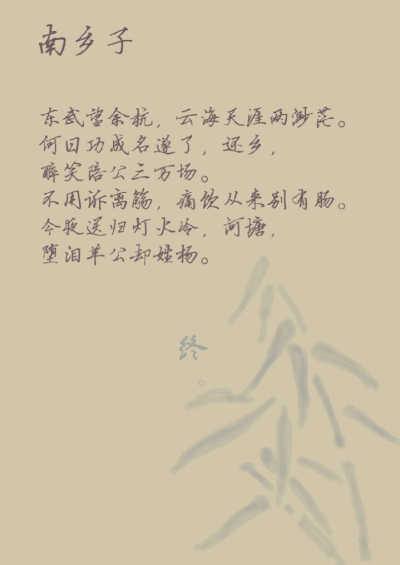 南乡子
东武望余杭，云海天涯两渺茫。
何日功成名遂了，还乡，
醉笑陪公三万场。
不用诉离觞，痛饮从来别有肠。
今夜送归灯火冷，河塘，
堕泪羊公却姓杨。
终
。